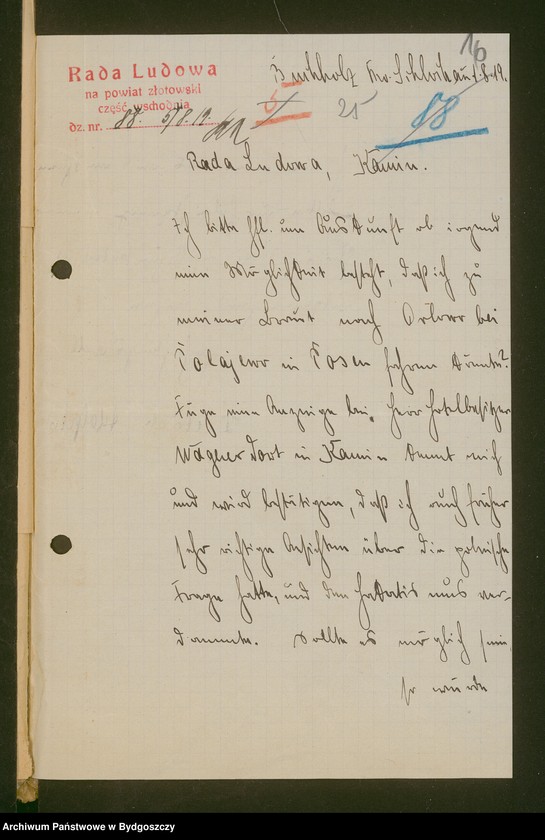 16
Rada Ludowa
na powiat złotowski
część wschodnia
dz. nr. 88. 5/8.19
Buchholz Kr. Schlochau 8.19.
5
25
88
Rada Ludowa, Kamin.
Ich bitte hfl. um Auskunft ob irgend
eine Möglichkeit besteht, daß ich zu
meiner Braut nach Orlowo bei
Polajewo in Posen fahren könnte?
Füge eine Anzeige bei. Herr Hotelbesitzer
Wagner dort in Kamin kennt mich
und wird bestätigen, daß ich auch früher
sehr richtige Ansichten über die polnische
Frage hatte, und den Hakatismus ver-
dammte. Sollte es möglich sein,
so würde
Archiwum Państwowe w Bydgoszczy